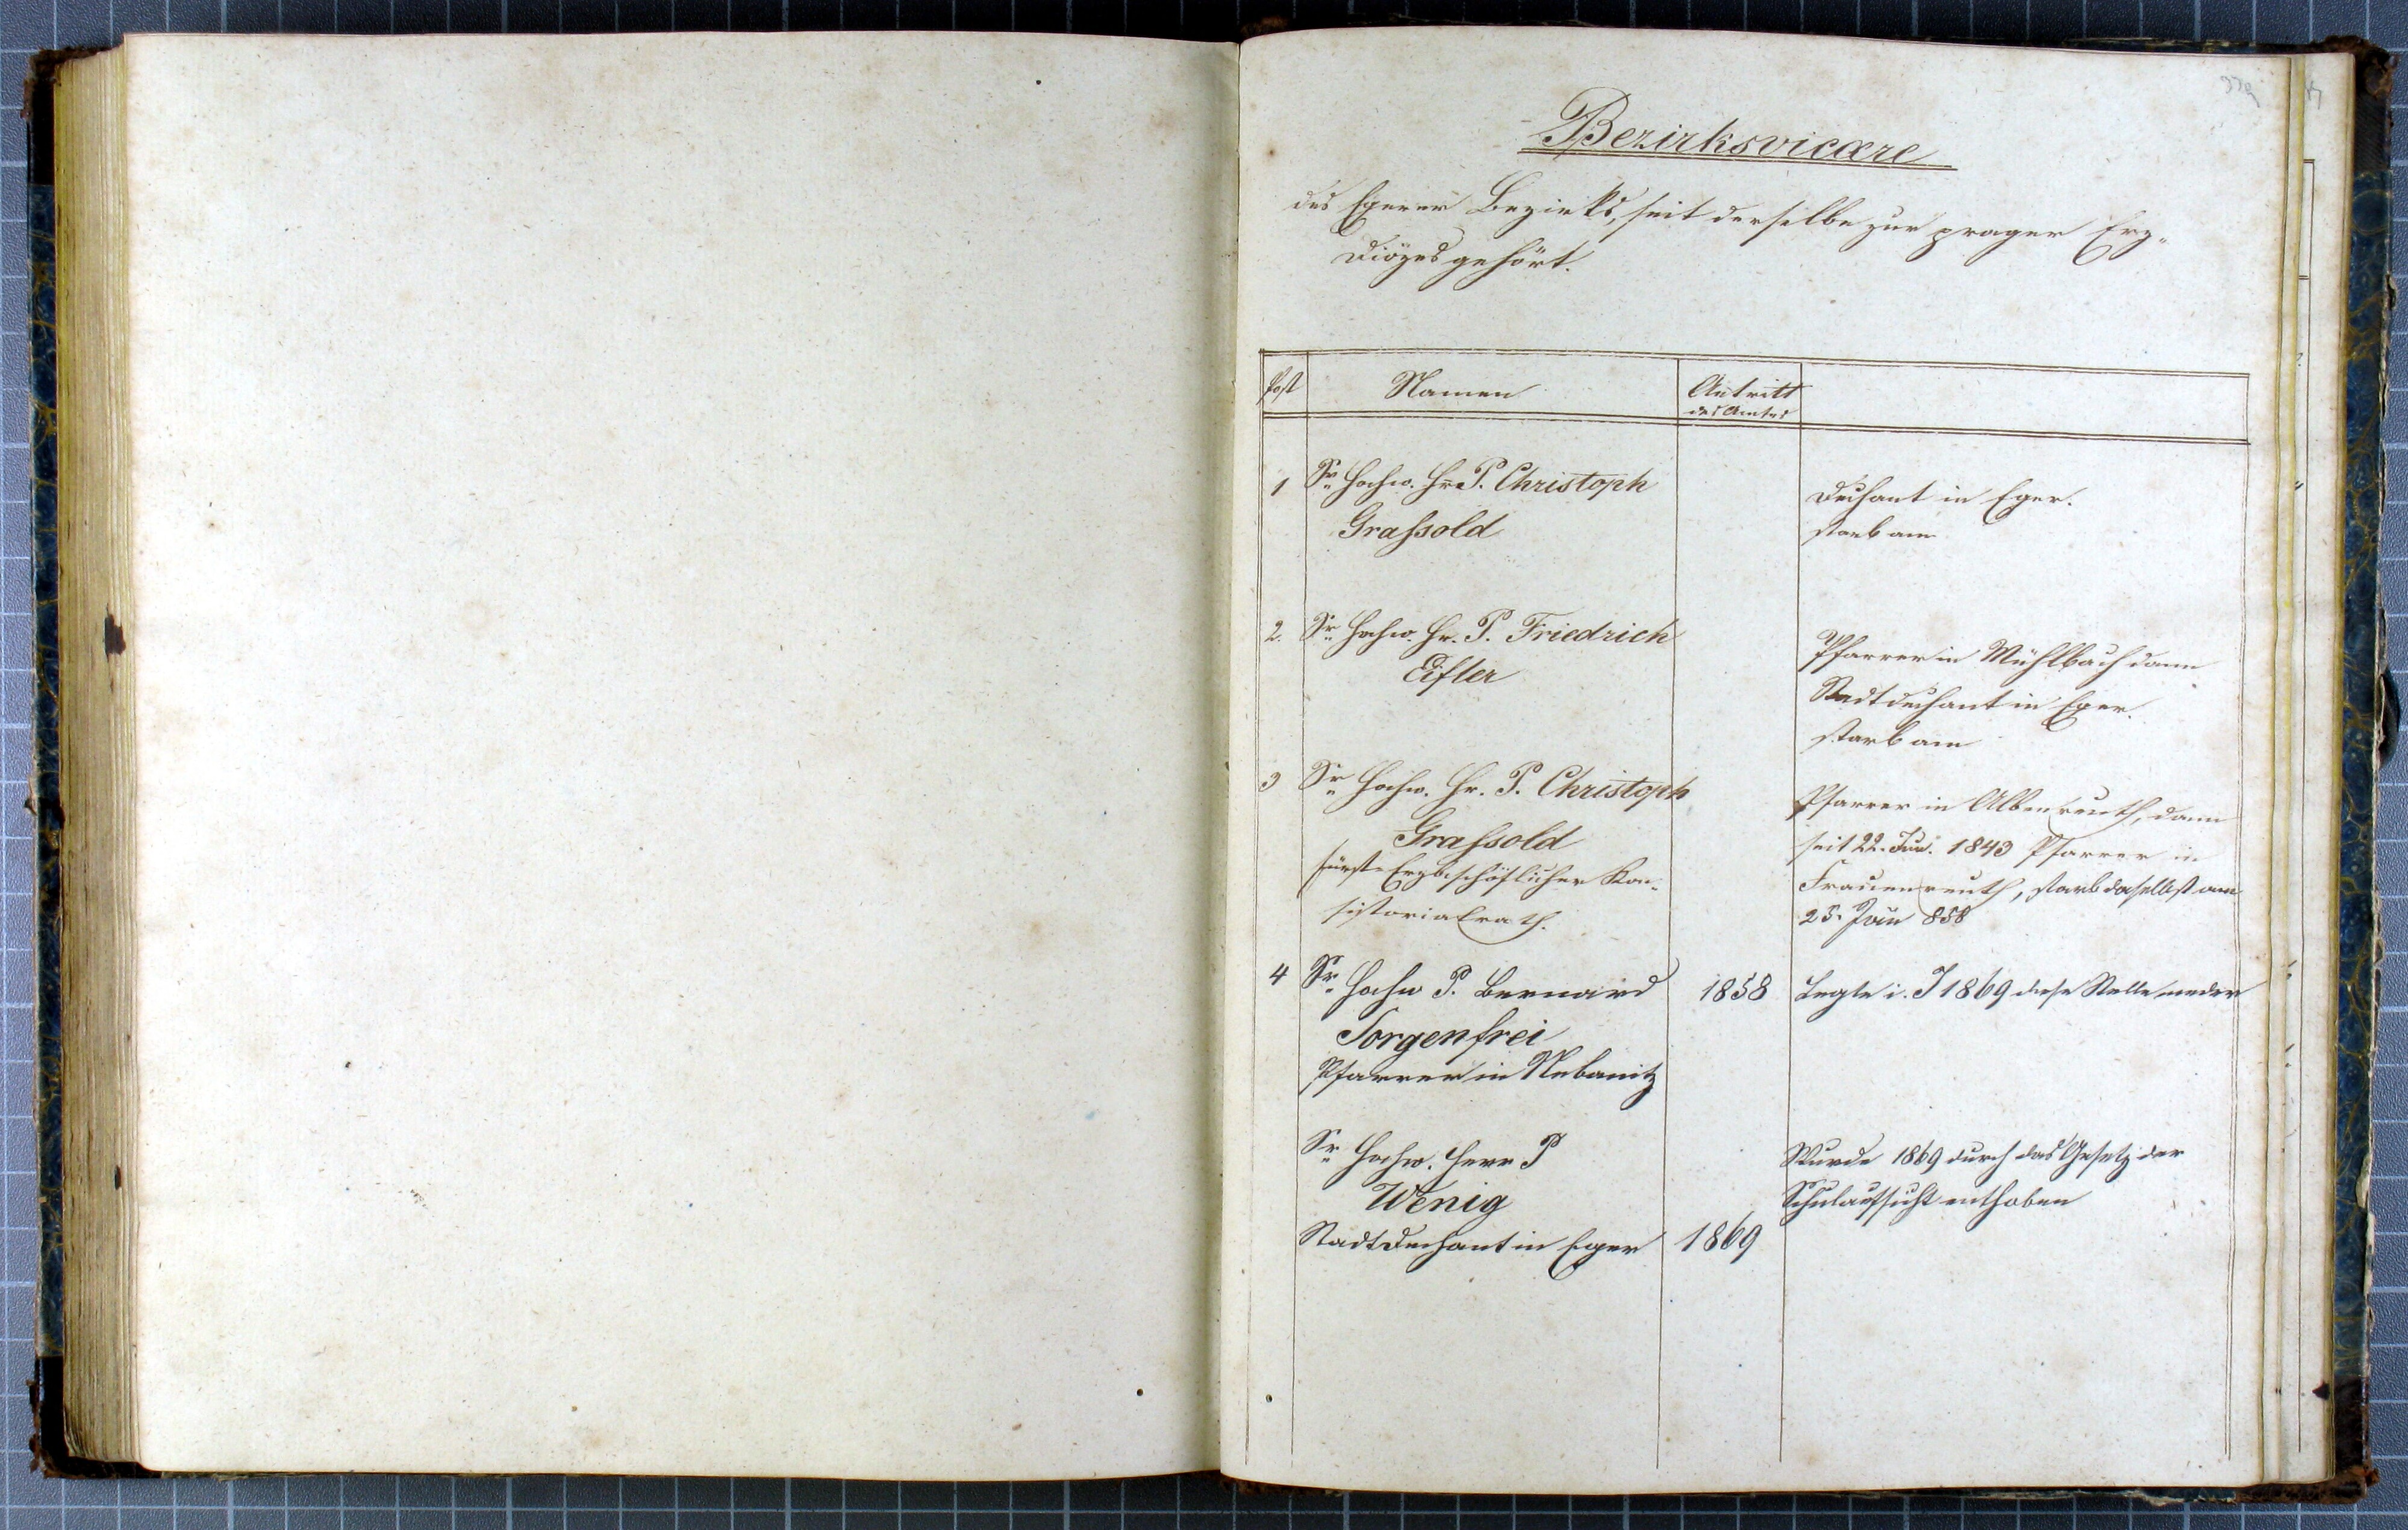 Bezirksvicære
des Egerer Bezirks, seit derselbe zur prager Erz-
diözes gehört.
Post Namen Antritt
des Amtes
1 Sr. Hochw. Hr. P. Christoph
Graßold
Dechant in Eger.
starb am
2. Sr. Hochw. Hr. P. Friedrich
Eifler
Pfarrer in Mühlbach dann
Stadtdechant in Eger.
starb am
3 Sr. Hochw. Hr. P. Christoph
Graßold
fürst-Erzbischöflicher Kon-
sistorialrath.
Pfarrer in Albenreuth, dann
seit 22. 1843 Pfarrer in
Frauenreuth, starb daselbst am
25. 858
4 Sr. Hochw P. Bernard 1858 Legte i. J 1869 diese Stelle nieder
Sorgenfrei
Pfarrer in Nebanitz
Sr. Hochw. Herr P
Wenig
Stadtdechant in Eger 1869
Wurde 1869 durch das Gesetz der
Schulaufsicht enthoben